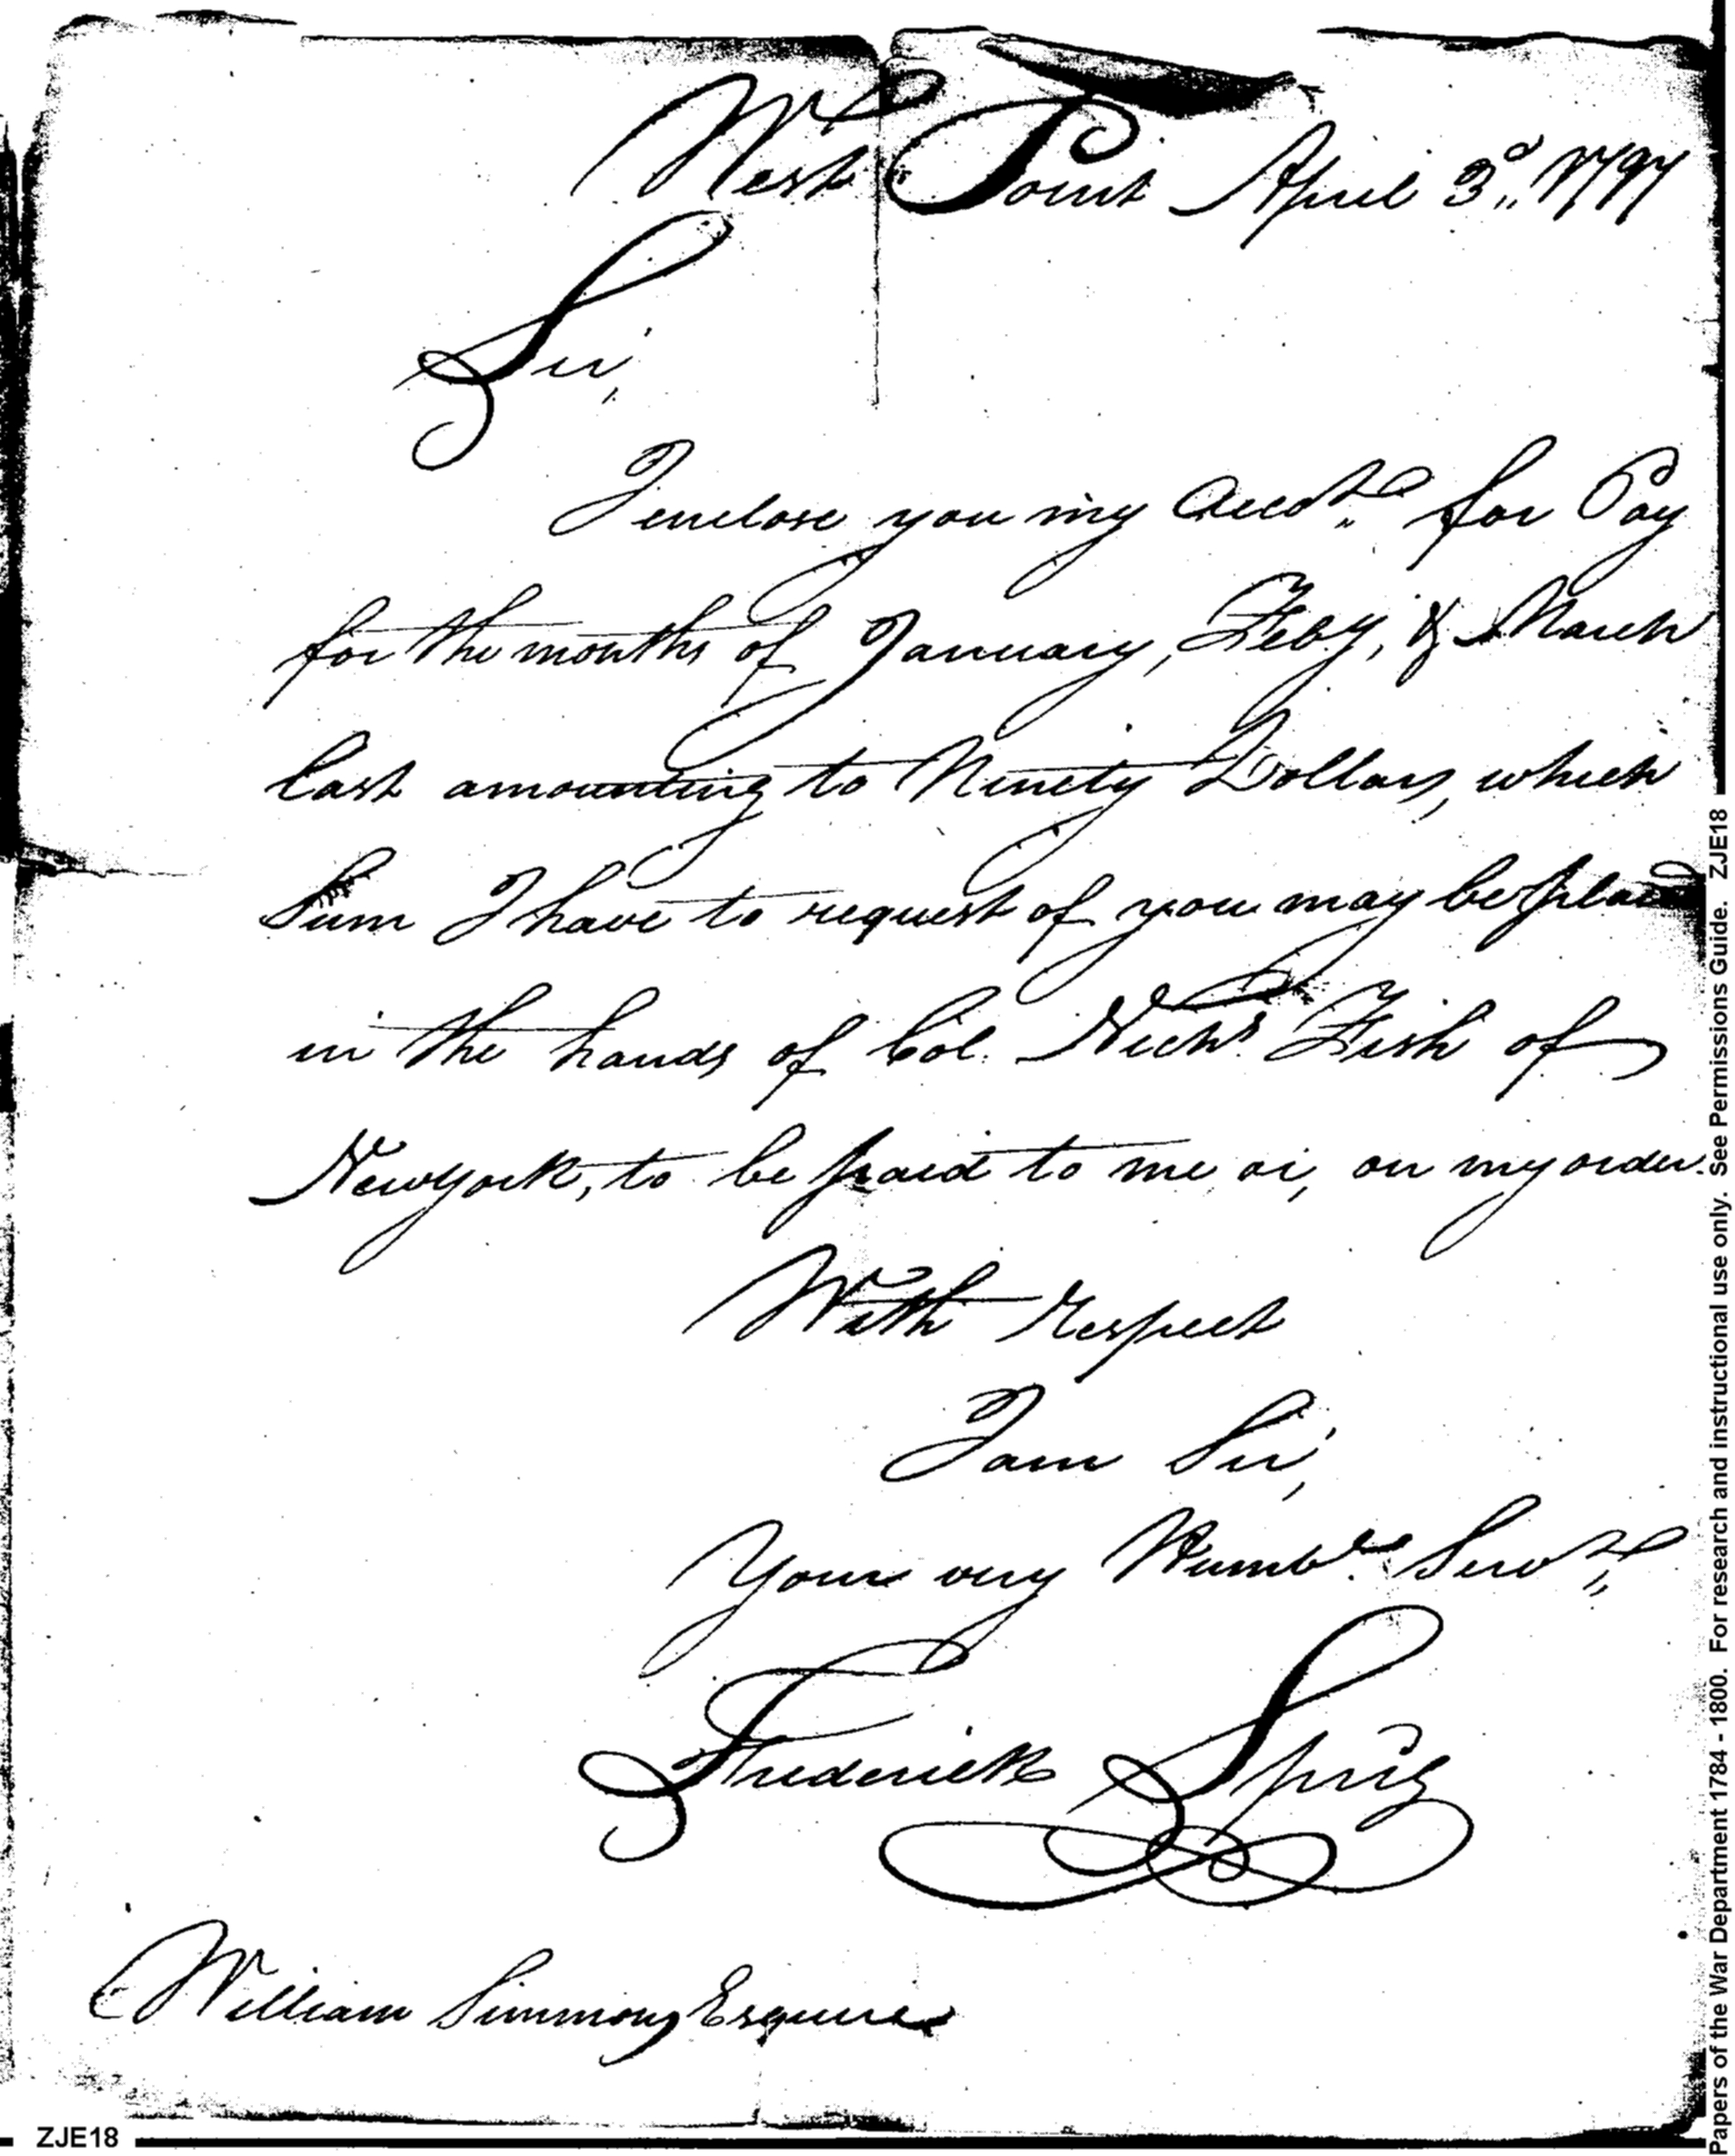 West Point April 3d. 1797
Sir,
I enclose you my Acco.t for Pay
for the months of January, Feby, & March
last amounting to Ninety Dollars, which
Sum I have to request of you may be placed
in the hands of Col. Nichs. Fish of
Newyork, to be paid to me or, on my order.
With Respect
I am Sir,
Your very Humbe. Servt,
Frederick Sprig
William Simmons Esquire
ZJE18
Papers of the War Department 1784 - 1800. For research and instructional use only. See Permissions Guide. ZJE18